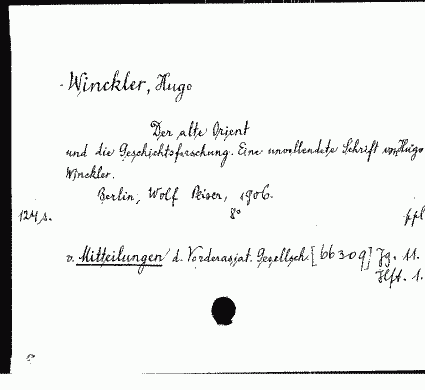 Winckler, Hugo
Der alte Orient
und die Geschichtsforschung. Eine unvollendete Schrift von Hugo
Winckler.
Berlin, Wolf Peiser, 1906.
124 s. 8° ppl
v. Mitteilungen d. Vorderasiat. Gesellsch. [bb 309] Jg. 11.
Hft. 1.